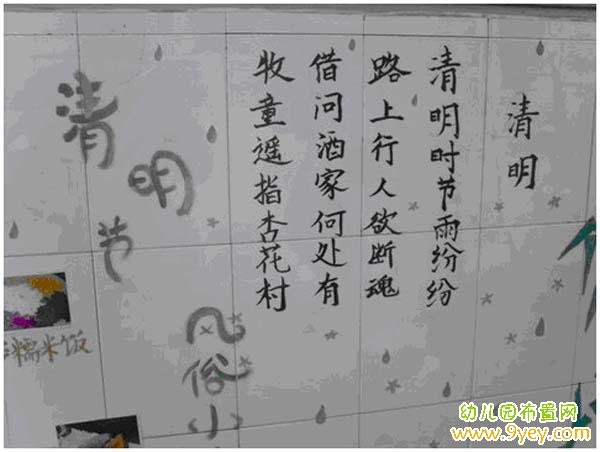 清明
清明时节雨纷纷
路上行人欲断魂
借问酒家何处有
牧童遥指杏花村
清明节
风俗小
糯米饭
幼儿园布置网
www.9yey.com